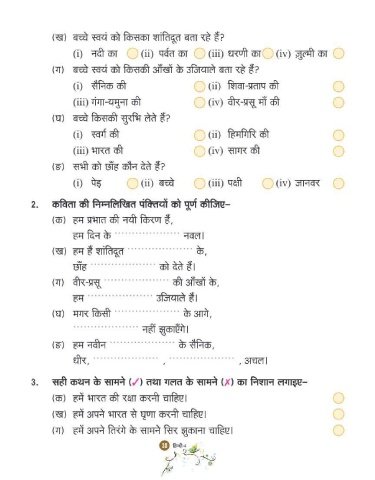 (ख) बच्चे स्वयं को किसका शांतिदूत बता रहे हैं?
(i) नदी का (ii) पर्वत का (iii) धरणी का (iv) ज़ुल्मी का
(ग) बच्चे स्वयं को किसकी आँखों के उजियाले बता रहे हैं?
(i) सैनिक की (ii) शिवा-प्रताप की
(iii) गंगा-यमुना की (iv) वीर-प्रसू माँ की
(घ) बच्चे किसकी सुरभि लेते हैं?
(i) स्वर्ग की (ii) हिमगिरि की
(iii) भारत की (iv) सागर की
(ङ) सभी को छाँह कौन देते हैं?
(i) पेड़ (ii) बच्चे (iii) पक्षी (iv) जानवर
2. कविता की निम्नलिखित पंक्तियों को पूर्ण कीजिए–
(क) हम प्रभात की नयी किरण हैं,
हम दिन के ..................... नवल।
(ख) हम हैं शांतिदूत ..................... के,
छाँह ..................... को देते हैं।
(ग) वीर-प्रसू ..................... की आँखों के,
हम ..................... उजियाले हैं।
(घ) मगर किसी ..................... के आगे,
..................... नहीं झुकाएँगे।
(ङ) हम नवीन ..................... के सैनिक,
धीर, ..................... , ..................... , अचल।
3. सही कथन के सामने (✓) तथा गलत के सामने (✗) का निशान लगाइए–
(क) हमें भारत की रक्षा करनी चाहिए।
(ख) हमें अपने भारत से घृणा करनी चाहिए।
(ग) हमें अपने तिरंगे के सामने सिर झुकाना चाहिए।